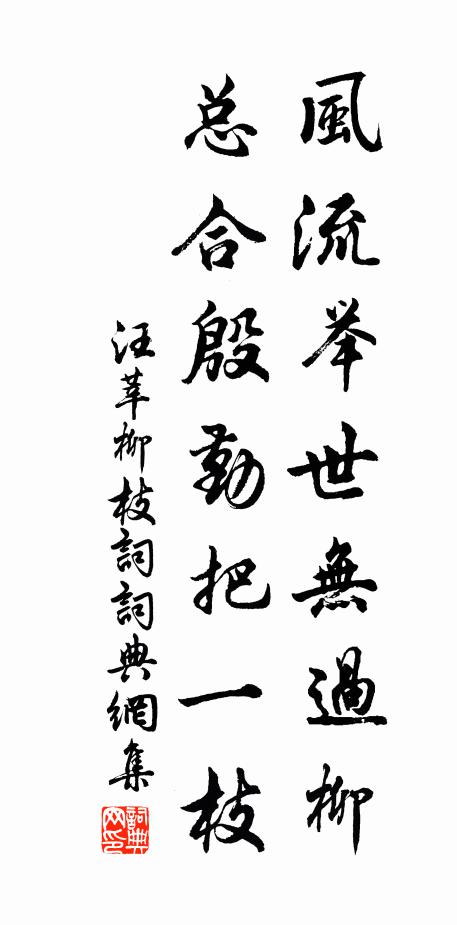 風流举世無過柳
总合殷勤把一枝
汪莘柳枝詞詞典網集
詞典網印